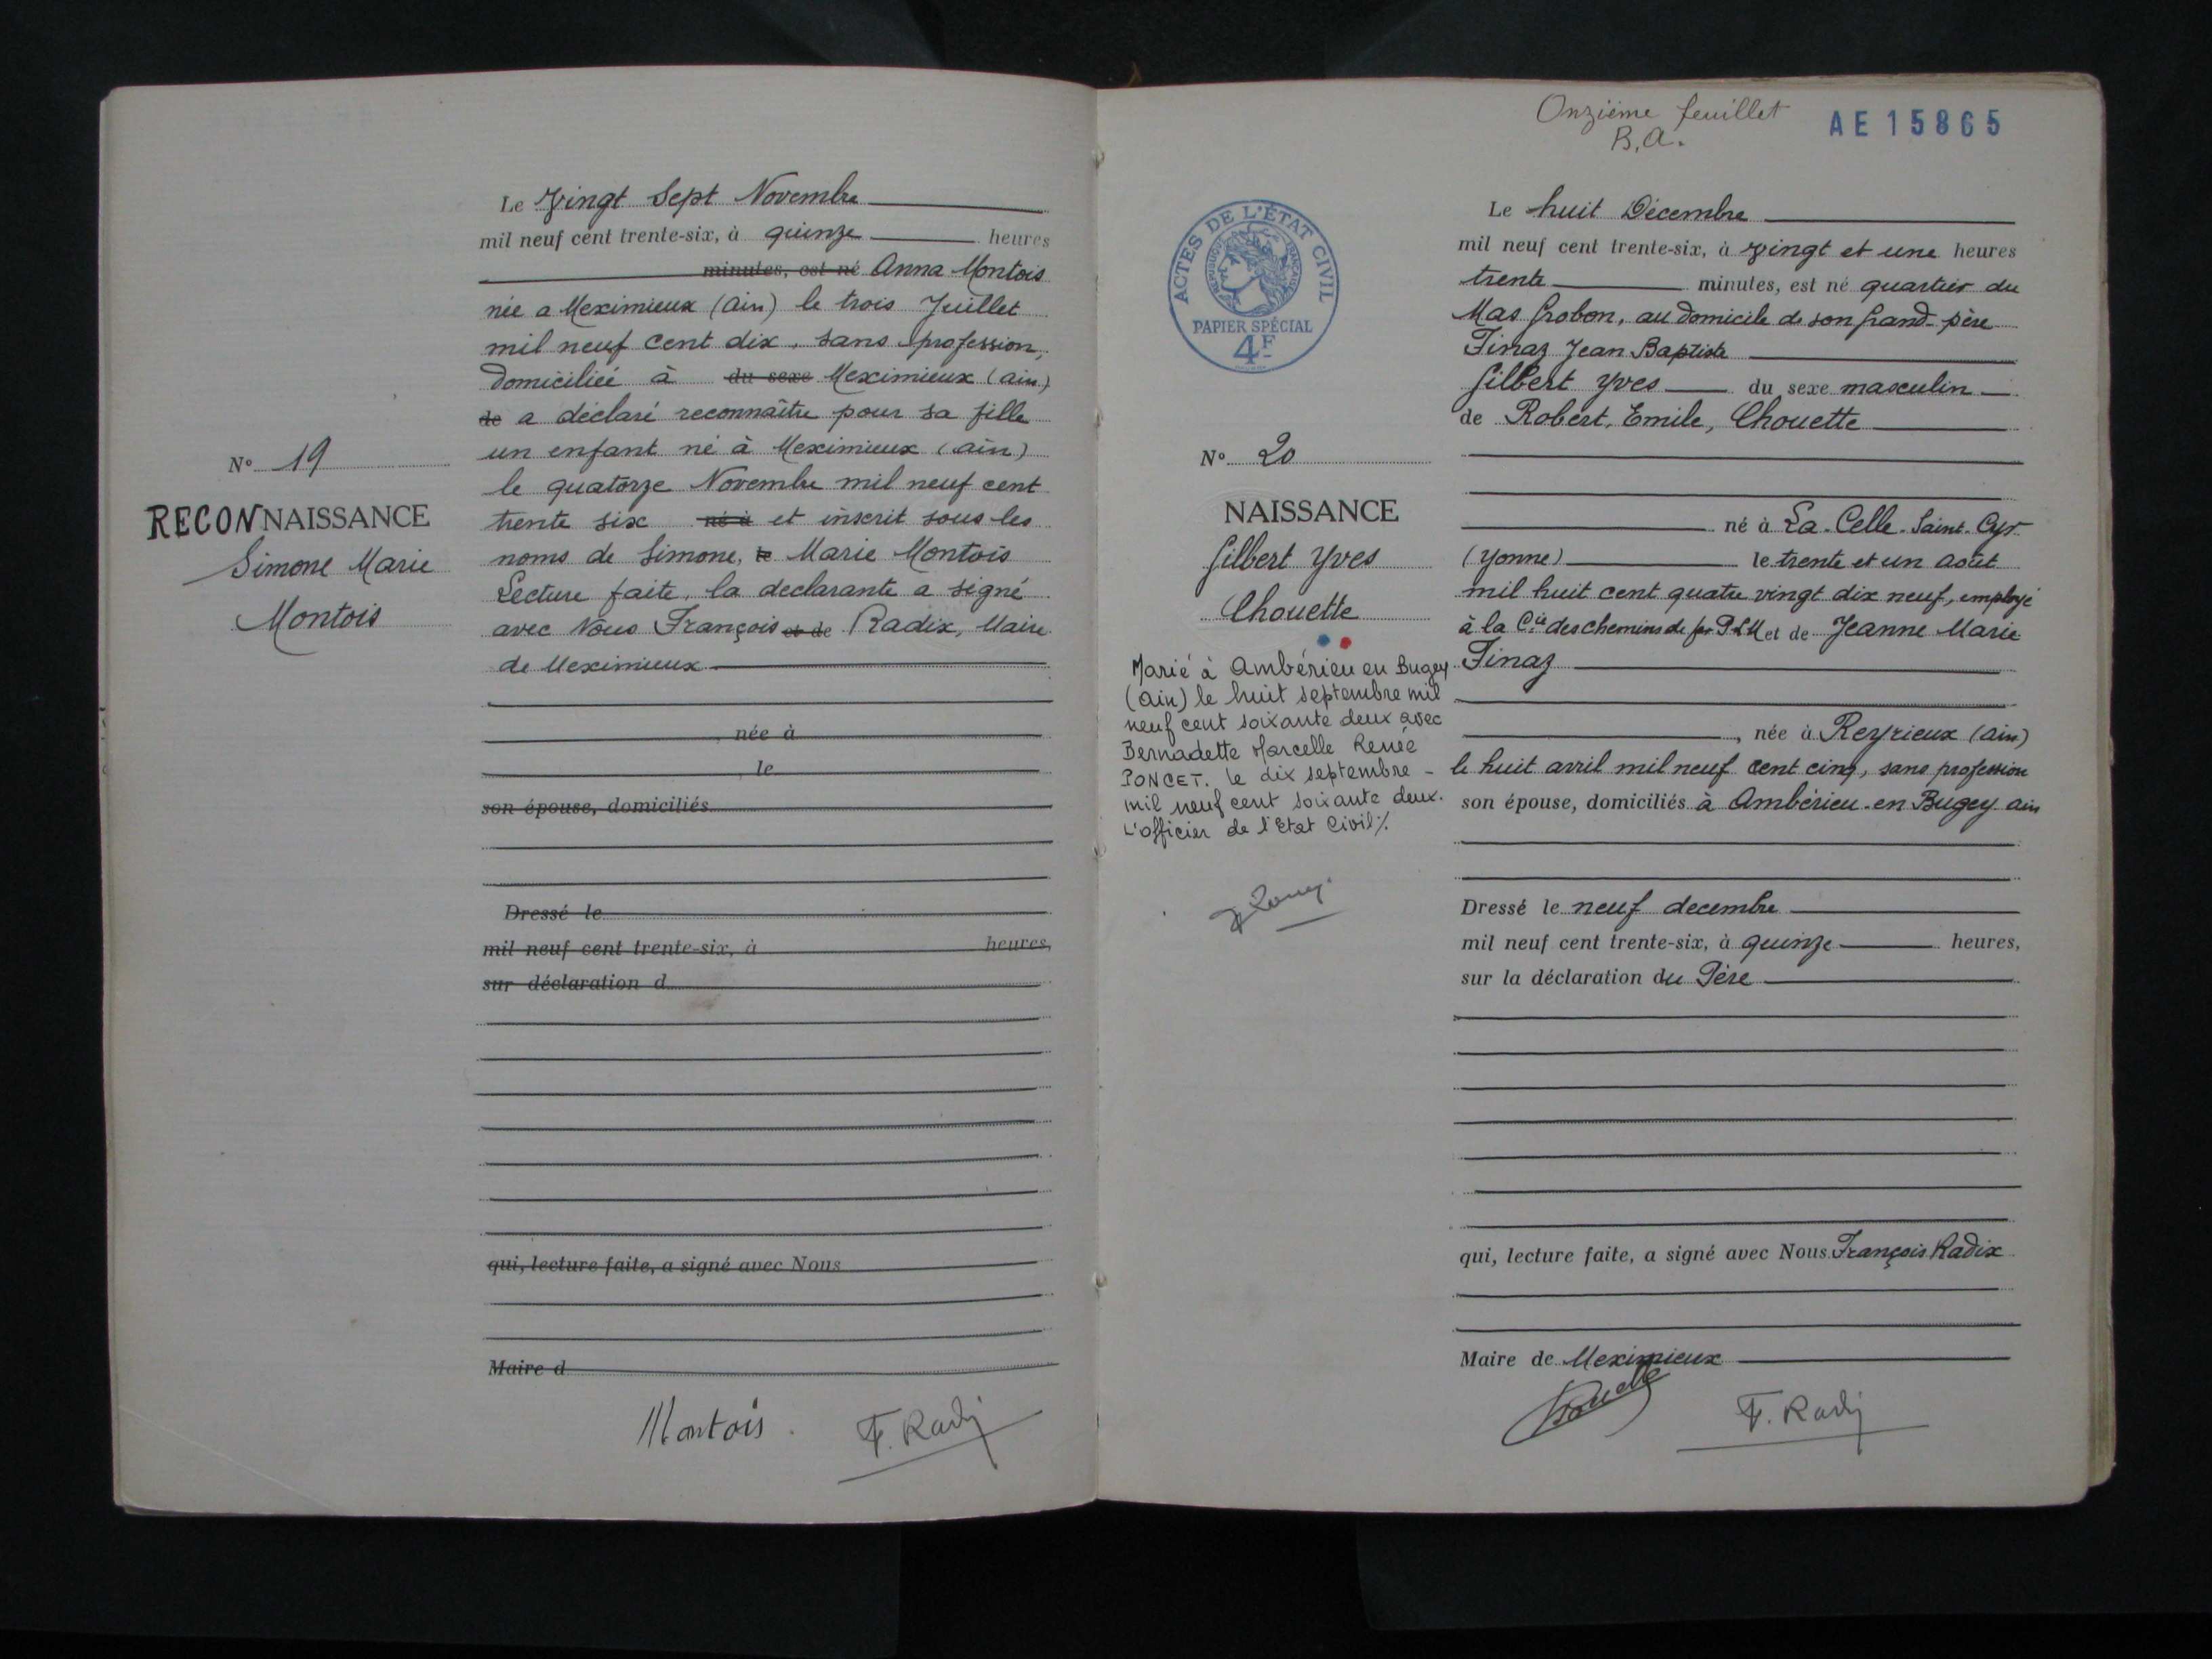 Le Vingt Sept Novembre
mil neuf cent trente-six, à quinze heures
minutes, est né Anna Montois
née a Meximieux (Ain) le trois Juillet
mil neuf cent dix, sans profession,
domiciliée à du sexe Meximieux (ain)
de a déclaré reconnaître pour sa fille
un enfant né à Meximieux (ain)
le quatorze Novembre mil neuf cent
trente six né à et inscrit sous les
noms de Simone, le Marie Montois
Lecture faite, la declarante a signé
avec Nous François et de Radix, Maire
de Meximieux
née à
le
son épouse, domiciliés
Dressé le
mil neuf cent trente-six, à heures,
sur déclaration d
qui, lecture faite, a signé avec Nous
Maire d
Montois. F. Radix
N° 19
RECONNAISSANCE
Simone Marie
Montois
Onzième feuillet
B.A.
AE 15865
ACTES DE L'ÉTAT CIVIL
RÉPUBLIQUE FRANÇAISE
PAPIER SPÉCIAL
4F
N° 20
NAISSANCE
Gilbert Yves
Chouette
Marié à Ambérieu en Bugey
(Ain) le huit septembre mil
neuf cent soixante deux avec
Bernadette Marcelle Renée
PONCET. Le dix septembre -
mil neuf cent soixante deux.
L'officier de l'Etat Civil %.
Le huit Décembre
mil neuf cent trente-six, à vingt et une heures
trente minutes, est né quartier du
Mas Grobon, au domicile de son Grand-père
Finaz Jean Baptiste
Gilbert Yves du sexe masculin
de Robert, Emile, Chouette
né à La-Celle-Saint-Cyr
(Yonne) le trente et un Août
mil huit cent quatre vingt dix neuf, employé
à la Cie des chemins de fer P.L.M et de Jeanne Marie
Finaz
, née à Reyrieux (Ain)
le huit avril mil neuf cent cinq, sans profession
son épouse, domiciliés à Ambérieu-en Bugey ain
Dressé le neuf decembre
mil neuf cent trente-six, à quinze heures,
sur la déclaration du Père
qui, lecture faite, a signé avec Nous François Radix
Maire de Meximieux
Chouette F. Radix